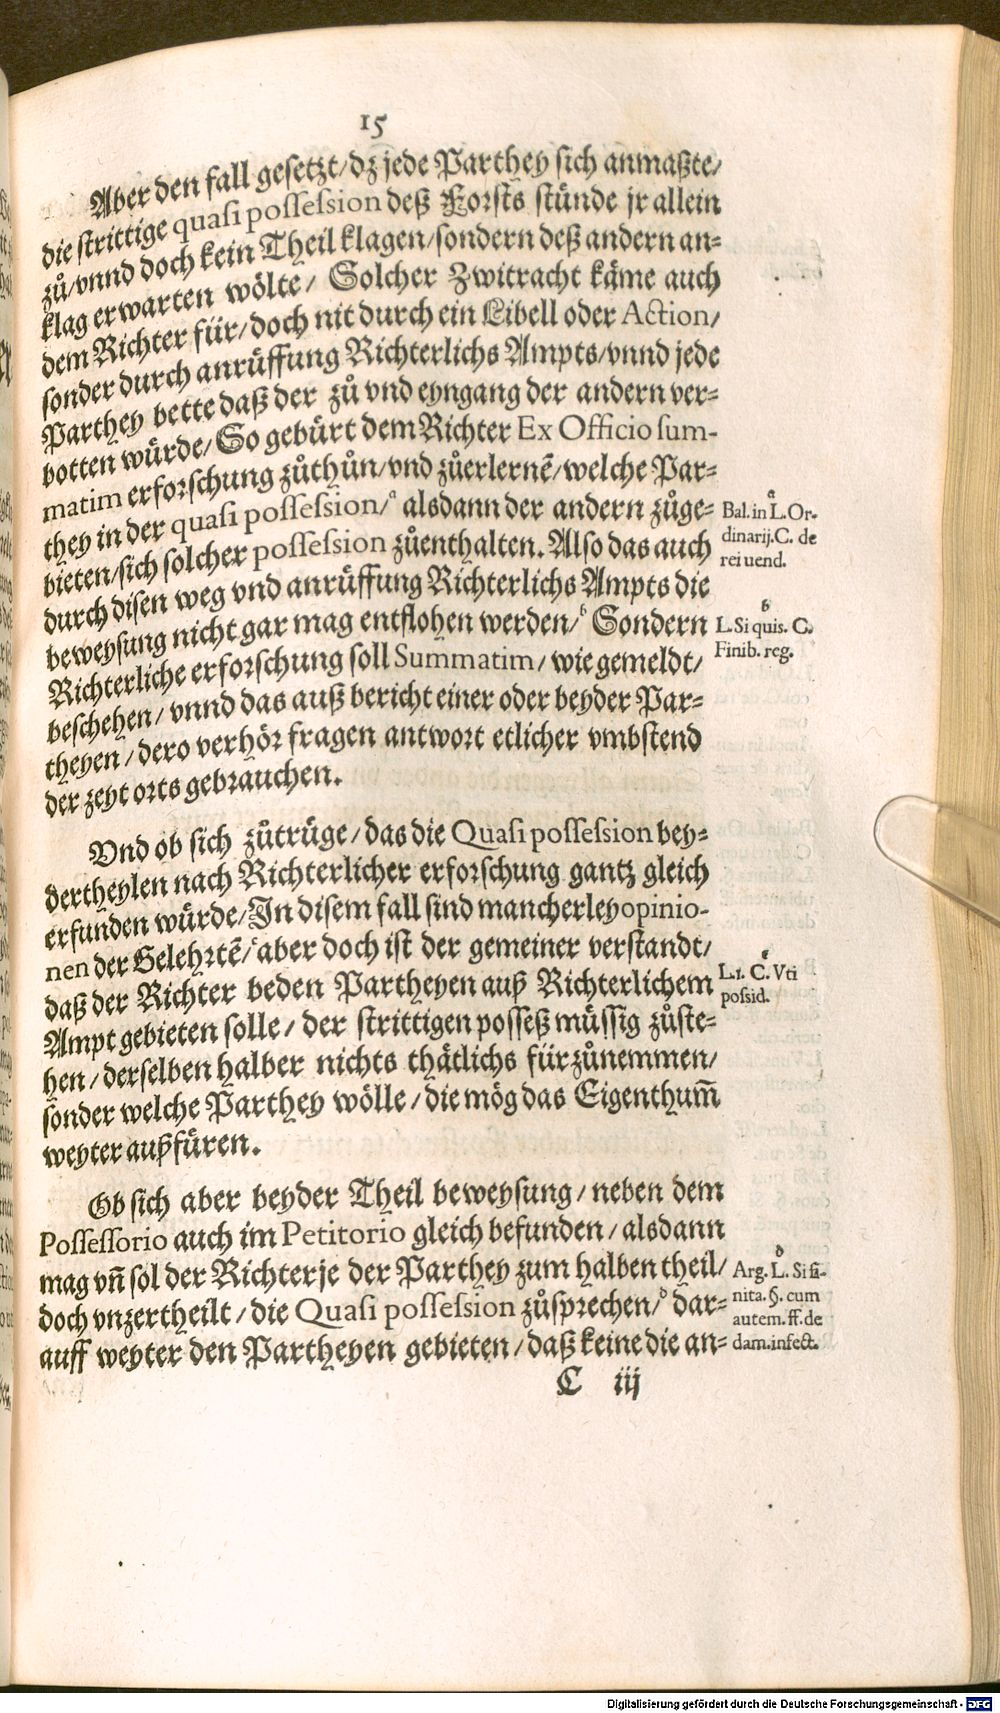 15
Aber den fall gesetzt/ dz jede Parthey sich anmaßte/
die strittige quasi possession deß Forsts stünde jr allein
zů/ vnnd doch kein Theil klagen/ sondern deß andern an-
klag erwarten wölte/ Solcher Zwitracht käme auch
dem Richter für/ doch nit durch ein Libell oder Action/
sonder durch anrüffung Richterlichs Ampts/ vnnd jede
Parthey bette daß der zů vnd eyngang der andern ver-
botten würde/ So gebürt dem Richter Ex Officio sum-
matim erforschung zůthůn/ vnd zůerlernẽ/ welche Par-
they in der quasi possession/ ᵃ alsdann der andern zůge-
bieten/ sich solcher possession zůenthalten. Also das auch
durch disen weg vnd anrüffung Richterlichs Ampts die
beweysung nicht gar mag entflohen werden/ ᵇ Sondern
Richterliche erforschung soll Summatim/ wie gemeldt/
beschehen/ vnnd das auß bericht einer oder beyder Par-
theyen/ dero verhör fragen antwort etlicher vmbstend
der zeyt orts gebrauchen.
Vnd ob sich zůtrüge/ das die Quasi possession bey-
dertheylen nach Richterlicher erforschung gantz gleich
erfunden würde/ In disem fall sind mancherley opinio-
nen der Gelehrtẽ/ ᶜ aber doch ist der gemeiner verstandt/
daß der Richter beden Partheyen auß Richterlichem
Ampt gebieten solle/ der strittigen posseß müssig zůste-
hen/ derselben halber nichts thätlichs fürzůnemmen/
sonder welche Parthey wölle/ die mög das Eigenthum̃
weyter außfüren.
Ob sich aber beyder Theil beweysung/ neben dem
Possessorio auch im Petitorio gleich befunden/ alsdann
mag vñ sol der Richter je der Parthey zum halben theil/
doch vnzertheilt/ die Quasi possession zůsprechen/ ᵈ dar-
auff weyter den Partheyen gebieten/ daß keine die an-
C iij
a
Bal. in L. Or-
dinarij. C. de
rei uend.
b
L. Si quis. C.
Finib. reg.
c
L. 1. C. Vti
possid.
d
Arg. L. Si fi-
nita. §. cum
autem. ff. de
dam. infect.
Digitalisierung gefördert durch die Deutsche Forschungsgemeinschaft - DFG